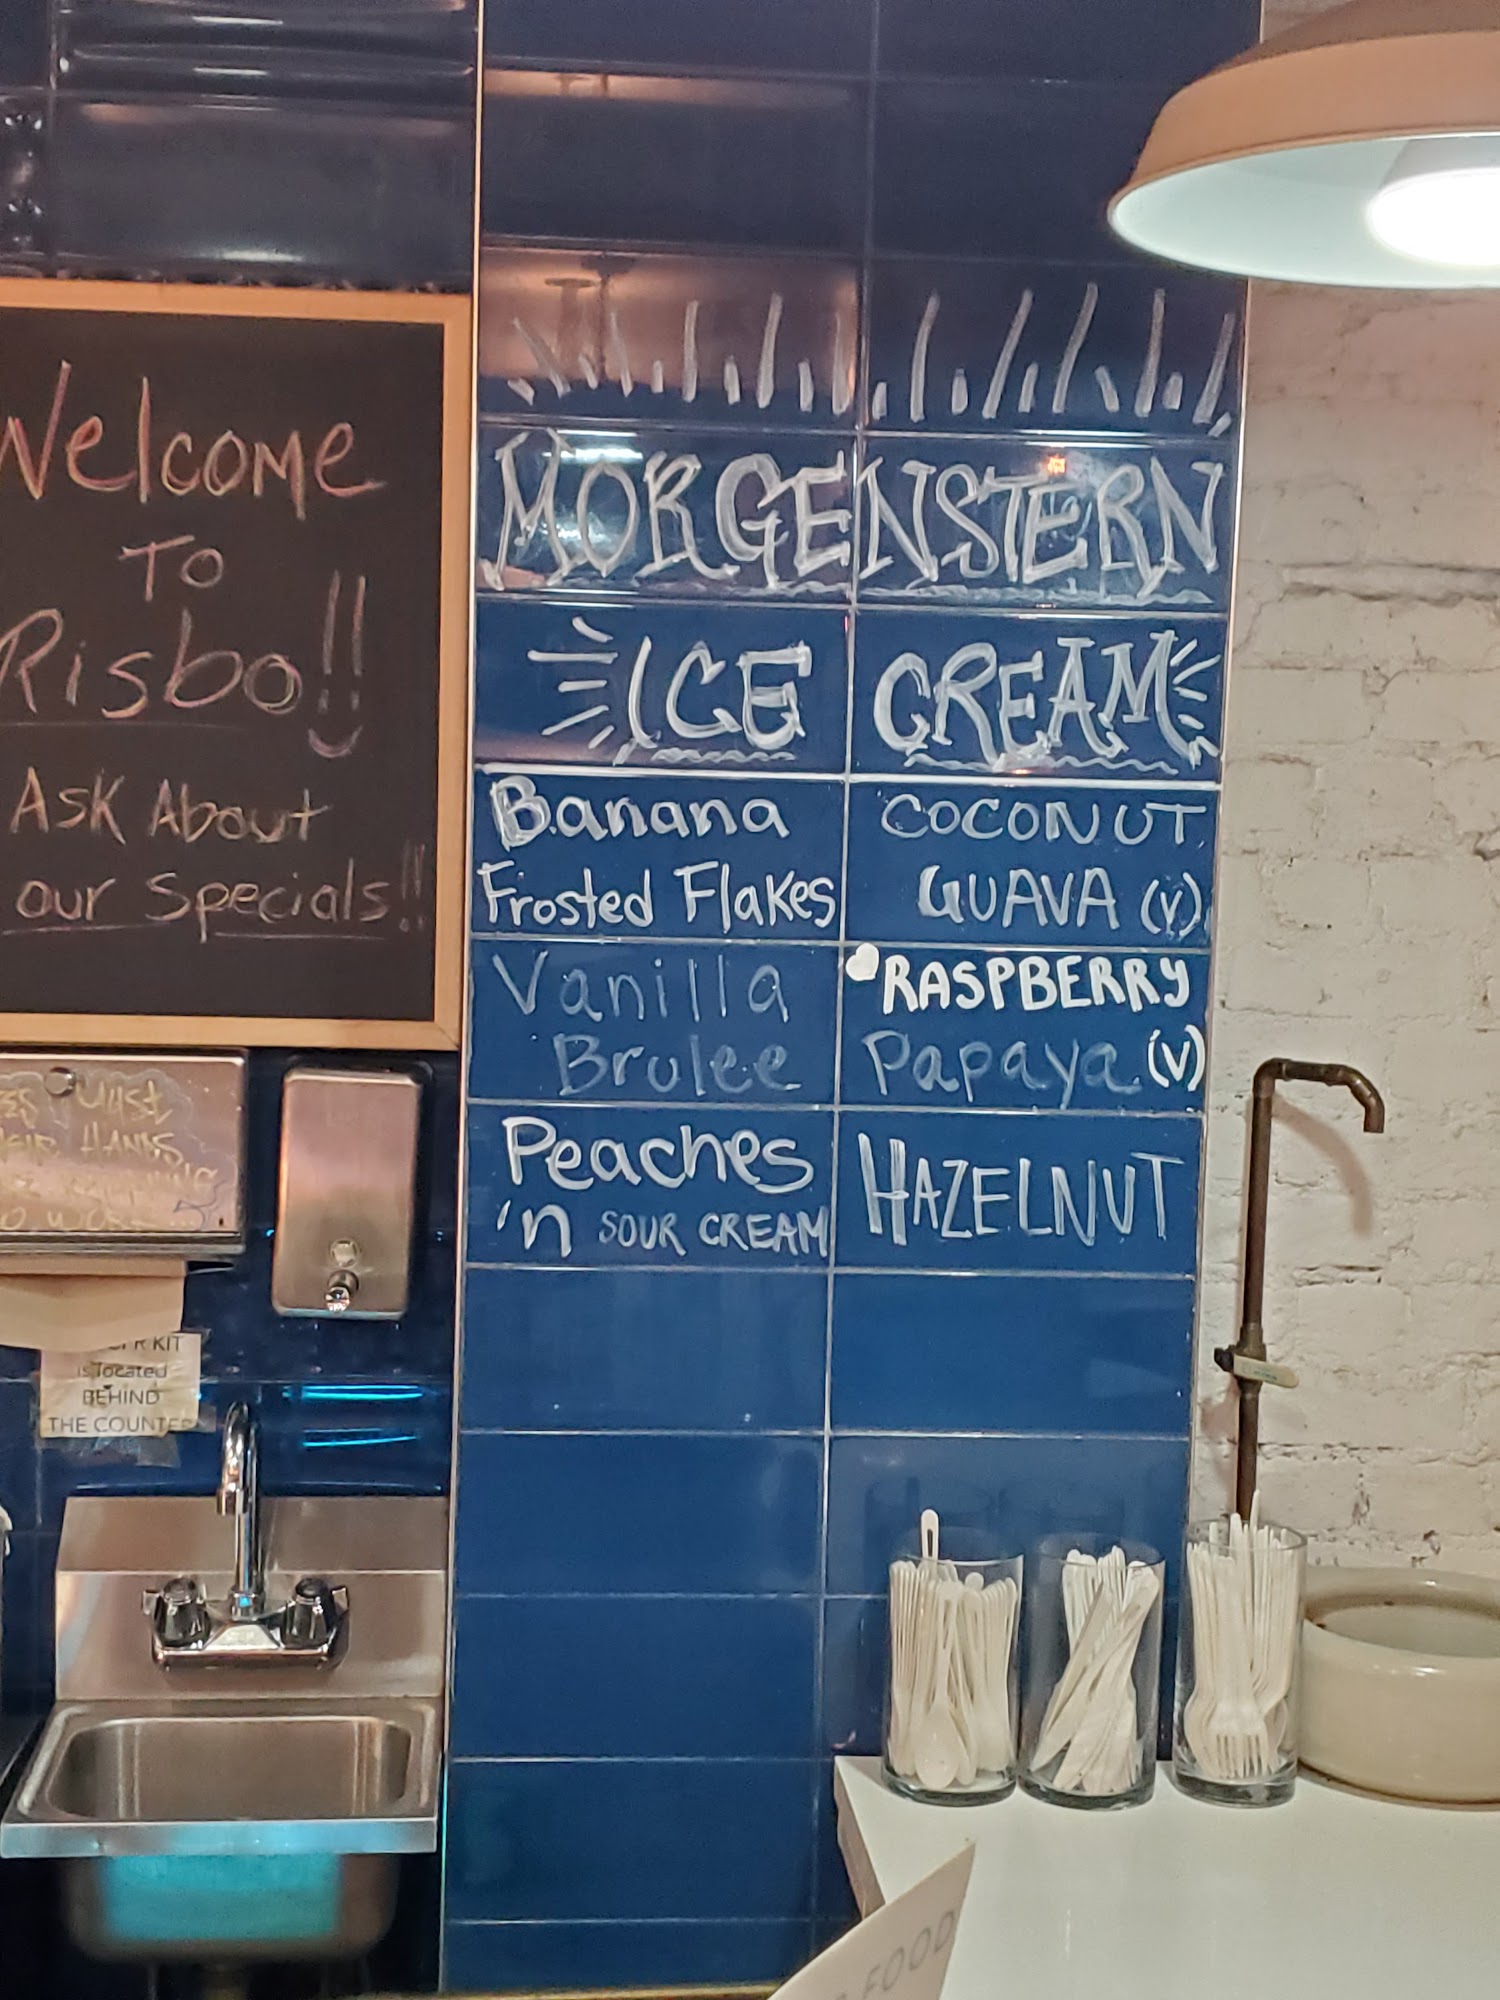 Welcome
To
Risbo!!
Ask About
our Specials!!
MORGENSTERN
ICE CREAM
Banana
Frosted Flakes
COCONUT
GUAVA (V)
Vanilla
Brulee
RASPBERRY
Papaya (V)
Peaches
'n SOUR CREAM
HAZELNUT
MUST
HANDS
KIT
is located
BEHIND
THE COUNTER
FOOD